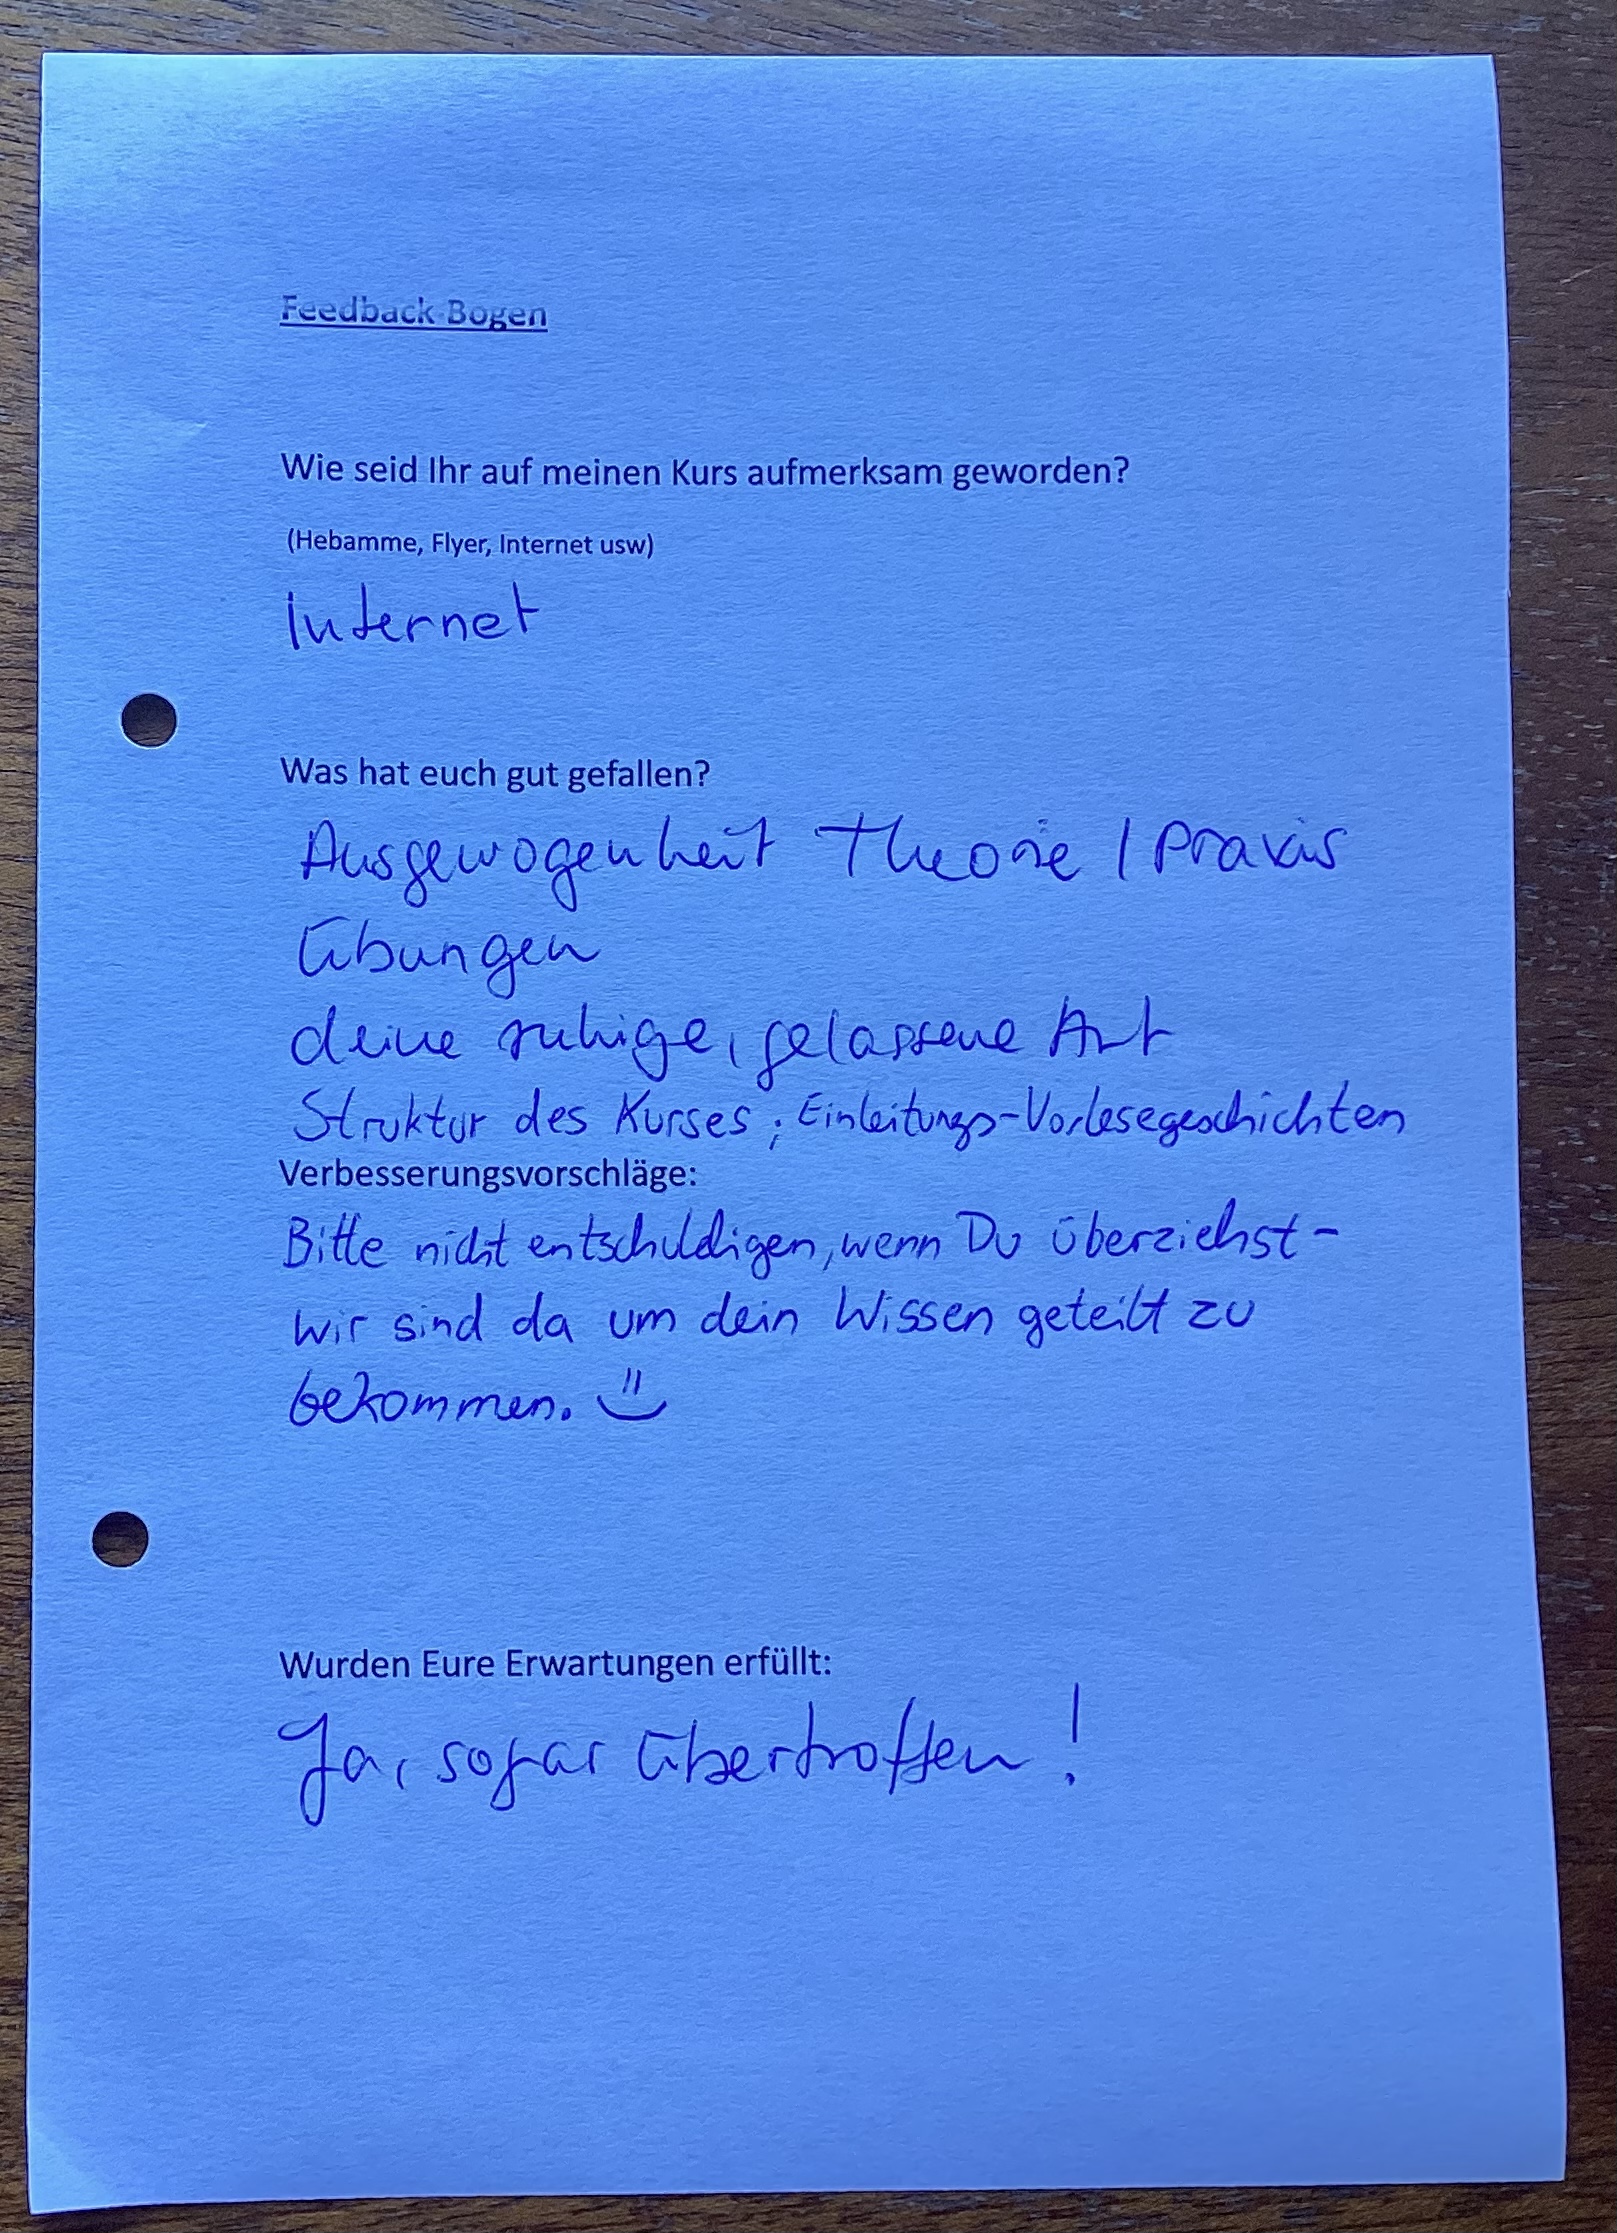 Feedback-Bogen
Wie seid Ihr auf meinen Kurs aufmerksam geworden?
(Hebamme, Flyer, Internet usw)
Internet
Was hat euch gut gefallen?
Ausgewogenheit Theorie / Praxis
Übungen
deine ruhige, gelassene Art
Struktur des Kurses; Einleitungs-Vorlesegeschichten
Verbesserungsvorschläge:
Bitte nicht entschuldigen, wenn Du überziehst -
wir sind da um dein Wissen geteilt zu
bekommen.
Wurden Eure Erwartungen erfüllt:
Ja, sogar übertroffen!